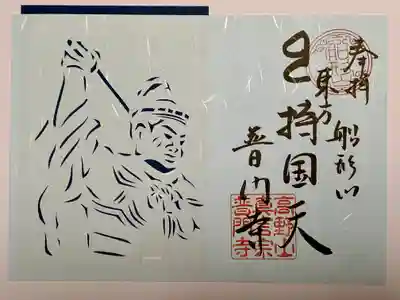 奉拝
船形山
東方
持国天
普門寺
高野山
真言宗
普門寺